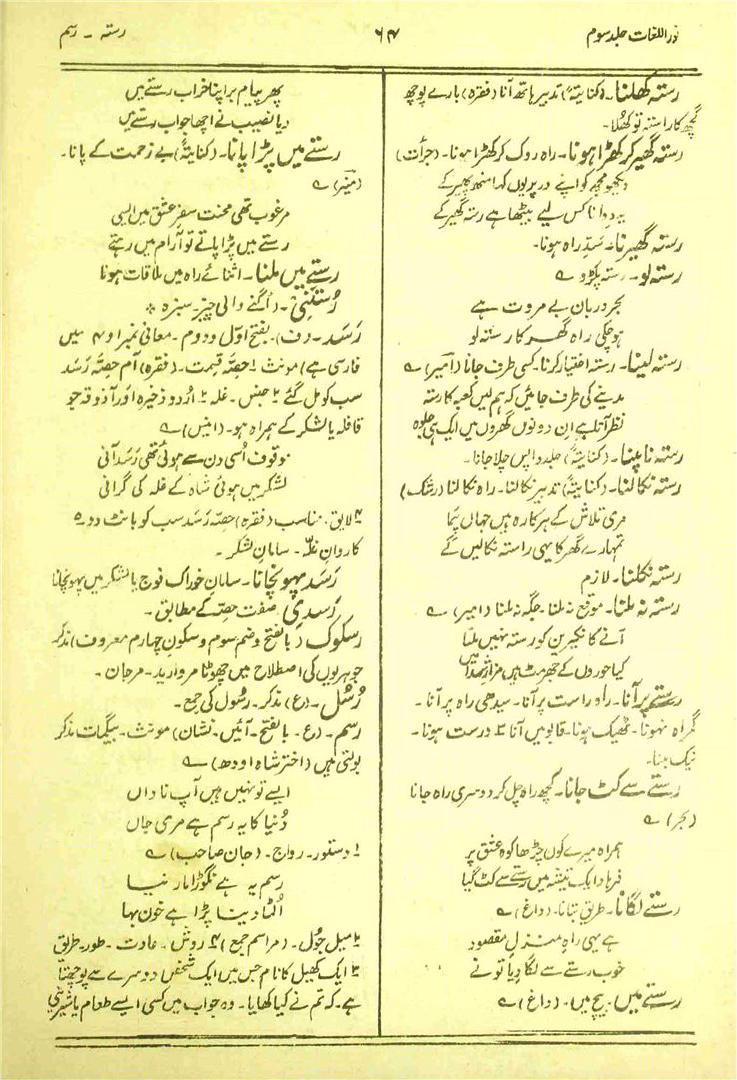 نور اللغات جلد سوم
۶۴
رستہ ۔ رسم
رستہ کھلنا۔ (کنایتہً) تدبیر ہاتھ آنا (فقرہ) بارے پوچھ
گچھ کا راستہ تو کھلا۔
رستہ گھیر کر کھڑا ہونا۔ راہ روک کر کھڑا ہونا۔ (جرأت)
دیکھو مجھ کو اپنے در پر یوں کہا منھ پھیر کے
یہ دِوانا کس لیے بیٹھا ہے رستہ گھیر کے
رستہ گھیرنا۔ سَدِّ راہ ہونا۔
رستہ لو۔ رستہ پکڑو ؎
بحر دربان بے مروت ہے
ہو چکی راہ گھر کا رستہ لو
رستہ لینا۔ رستہ اختیار کرنا۔ کسی طرف جانا (امیر) ؎
مدینے کی طرف جائیں کہ ہم لیں کعبہ کا رستہ
نظر آتا ہے ان دونوں گھروں میں ایک ہی جلوہ
رستہ ناپنا۔ (کنایتہً) جلد واپس چلا جانا۔
رستہ نکالنا۔ (کنایتہً) تدبیر نکالنا۔ راہ نکالنا (رشک)
مری تلاش کے ہرکارہ ہیں جہاں پَیما
تمہارے گھر کا یہی راستہ نکالیں گے
رستہ نکلنا۔ لازم
رستہ نہ ملنا۔ موقع نہ ملنا۔ جگہ نہ ملنا (امیر) ؎
آنے کا نکیرین کو رستہ نہیں ملتا
کیا حوروں کے جھرمٹ ہیں مزارِ شہدا میں
رستے پر آنا۔ راہ راست پر آنا۔ سیدھی راہ پر آنا۔
گمراہ نہونا۔ ٹھیک ہونا۔ قابو میں آنا ۲ درست ہونا۔
نیک بننا۔
رستے سے کٹ جانا۔ کچھ راہ چل کر دوسری راہ جانا
(بحر) ؎
ہمراہ میرے کون چڑھا کوہ عشق پر
فرہاد ایک تیشہ میں رستے سے کٹ گیا
رستے لگانا۔ طریق بتانا۔ (داغ) ؎
ہے یہی راہِ منزلِ مقصود
خوب رستے سے لگا دیا تو نے
رستے میں۔ بیچ میں۔ (داغ) ؎
پھر پیام بر اپنا خراب رستے میں
دیا نصیب نے اچھا جواب رستے میں
رستے میں پڑا پانا۔ (کنایتہً) بے زحمت کے پانا۔
(میر) ؎
مرغوب تھی محنت سفرِ عشق میں ایسی
رستے میں پڑا پاتے تو آرام میں رہتے
رستے میں ملنا۔ اثنائے راہ میں ملاقات ہونا
رُستَنی۔ اُگنے والی چیز۔ سبزہ
رَسَد۔ (ف)۔ بفتح اوّل و دوم۔ معانی نمبر ۱ و ۴ میں
فارسی ہے) مونث ۱ حصّہ قیمت۔ (فقرہ) آم حصّہ رَسَد
سب کو مل گئے ۲ جنس۔ غلہ ۳ اُردو ذخیرہ اور آذوقہ جو
قافلہ یا لشکر کے ہمراہ ہو۔ (انیس) ؎
موقوف اُسی دن سے ہوئی تھی رَسَد آنی
لشکر میں ہوئی شاہ کے غلہ کی گرانی
۴ لایق۔ مناسب (فقرہ) حصّہ رَسَد سب کو بانٹ دو ۵
کاروانِ غلّہ۔ سامانِ لشکر۔
رَسَد پہونچانا۔ سامانِ خوراک فوج یا لشکر میں پہونچانا
رَسَدِی۔ صفت حصے کے مطابق۔
رسکوک (بالفتح و ضم سوم و سکونِ چہارم معروف) مذکر
جوہریوں کی اصطلاح میں چھوٹا مروارید۔ مرجان۔
رُسُل۔ (ع) مذکر۔ رسُول کی جمع۔
رسم۔ (ع۔ بالفتح۔ آئین۔ نشان) مونث۔ بیگمات مذکر
بولتی ہیں (اختر شاہ اودھ) ؎
ایسے تو نہیں ہیں آپ ناداں
دُنیا کا یہ رسم ہے مری جاں
۱ دستور۔ رواج۔ (جان صاحب) ؎
رسم یہ ہے نگوڑا مار نیا
اُلٹا دینا پڑا ہے خون بہا
۲ میل جول۔ (مراسم جمع) ۴ روش۔ عادت۔ طور۔ طریق
۳ ایک کھیل کا نام جس میں ایک شخص دوسرے سے پوچھتا
ہے۔ کہ تم نے کیا کھایا۔ وہ جواب میں کسی ایسے طعام یا شیرینی